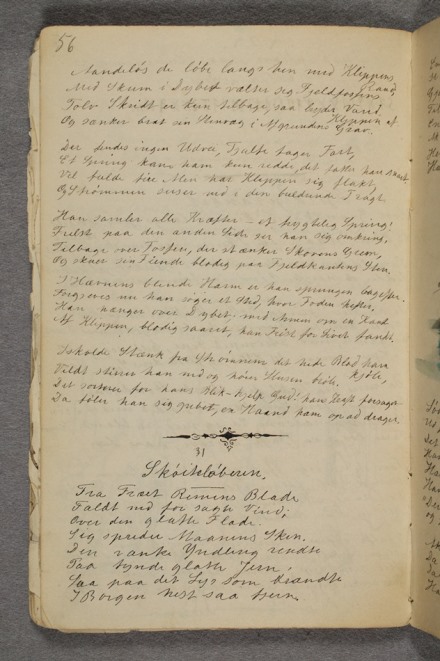 56
Aandeløs de løbe langs hen med Klippens Rand,
Med Skum i Dybet vælter sig Fjeldfossens
Tolv Skridt er kun tilbage, saa lyder Vand,
Og sænker brat sin i Afgrundens Grav.
Der findes ingen Udvei, tager Fart,
Et Spring kan ham kun redde, det fatter han snart
Vel fulde tie Alen har Klippen sig flakt,
Og Strømmen suser ned i den buldrende Tragt.
Han samler alle Kræfter – et frygtelig Spring!
Frelst paa den anden Side ser han sig omkring,
Tilbage over Fossen, der stænker Skovens Green,
Og skuer sin Fiende blodig paa Fjeldkantens Steen.
I Hævnens blinde Harm er han sprungen bagefter.
Forgjeves nu han søger et Sted, hvor Foden hefter,
Han hænger over Dybet med Armen om en Kant
Af Klippen, blodig saaret, han Frist for Livet fandt.
Iskolde Stænk fra Strømmen det hede Blod ham kjøle,
Vildt stirrer han ned og
Det sortner for hans Blik – hjelp Gud! hans Kraft forsage
Da føler han sig grebet, en Haand ham op ad drager.
31
Skøiteløberen.
Fra Træet Rimens Blade
Faldt ned for sagte Vind;
Over den glatte Flade
Sig spreder Maanens Skin.
Den ranke Yndling rendte
Paa tynde glatte Jern,
Saa paa det Lys som brændte
I Borgen hist saa fjern.